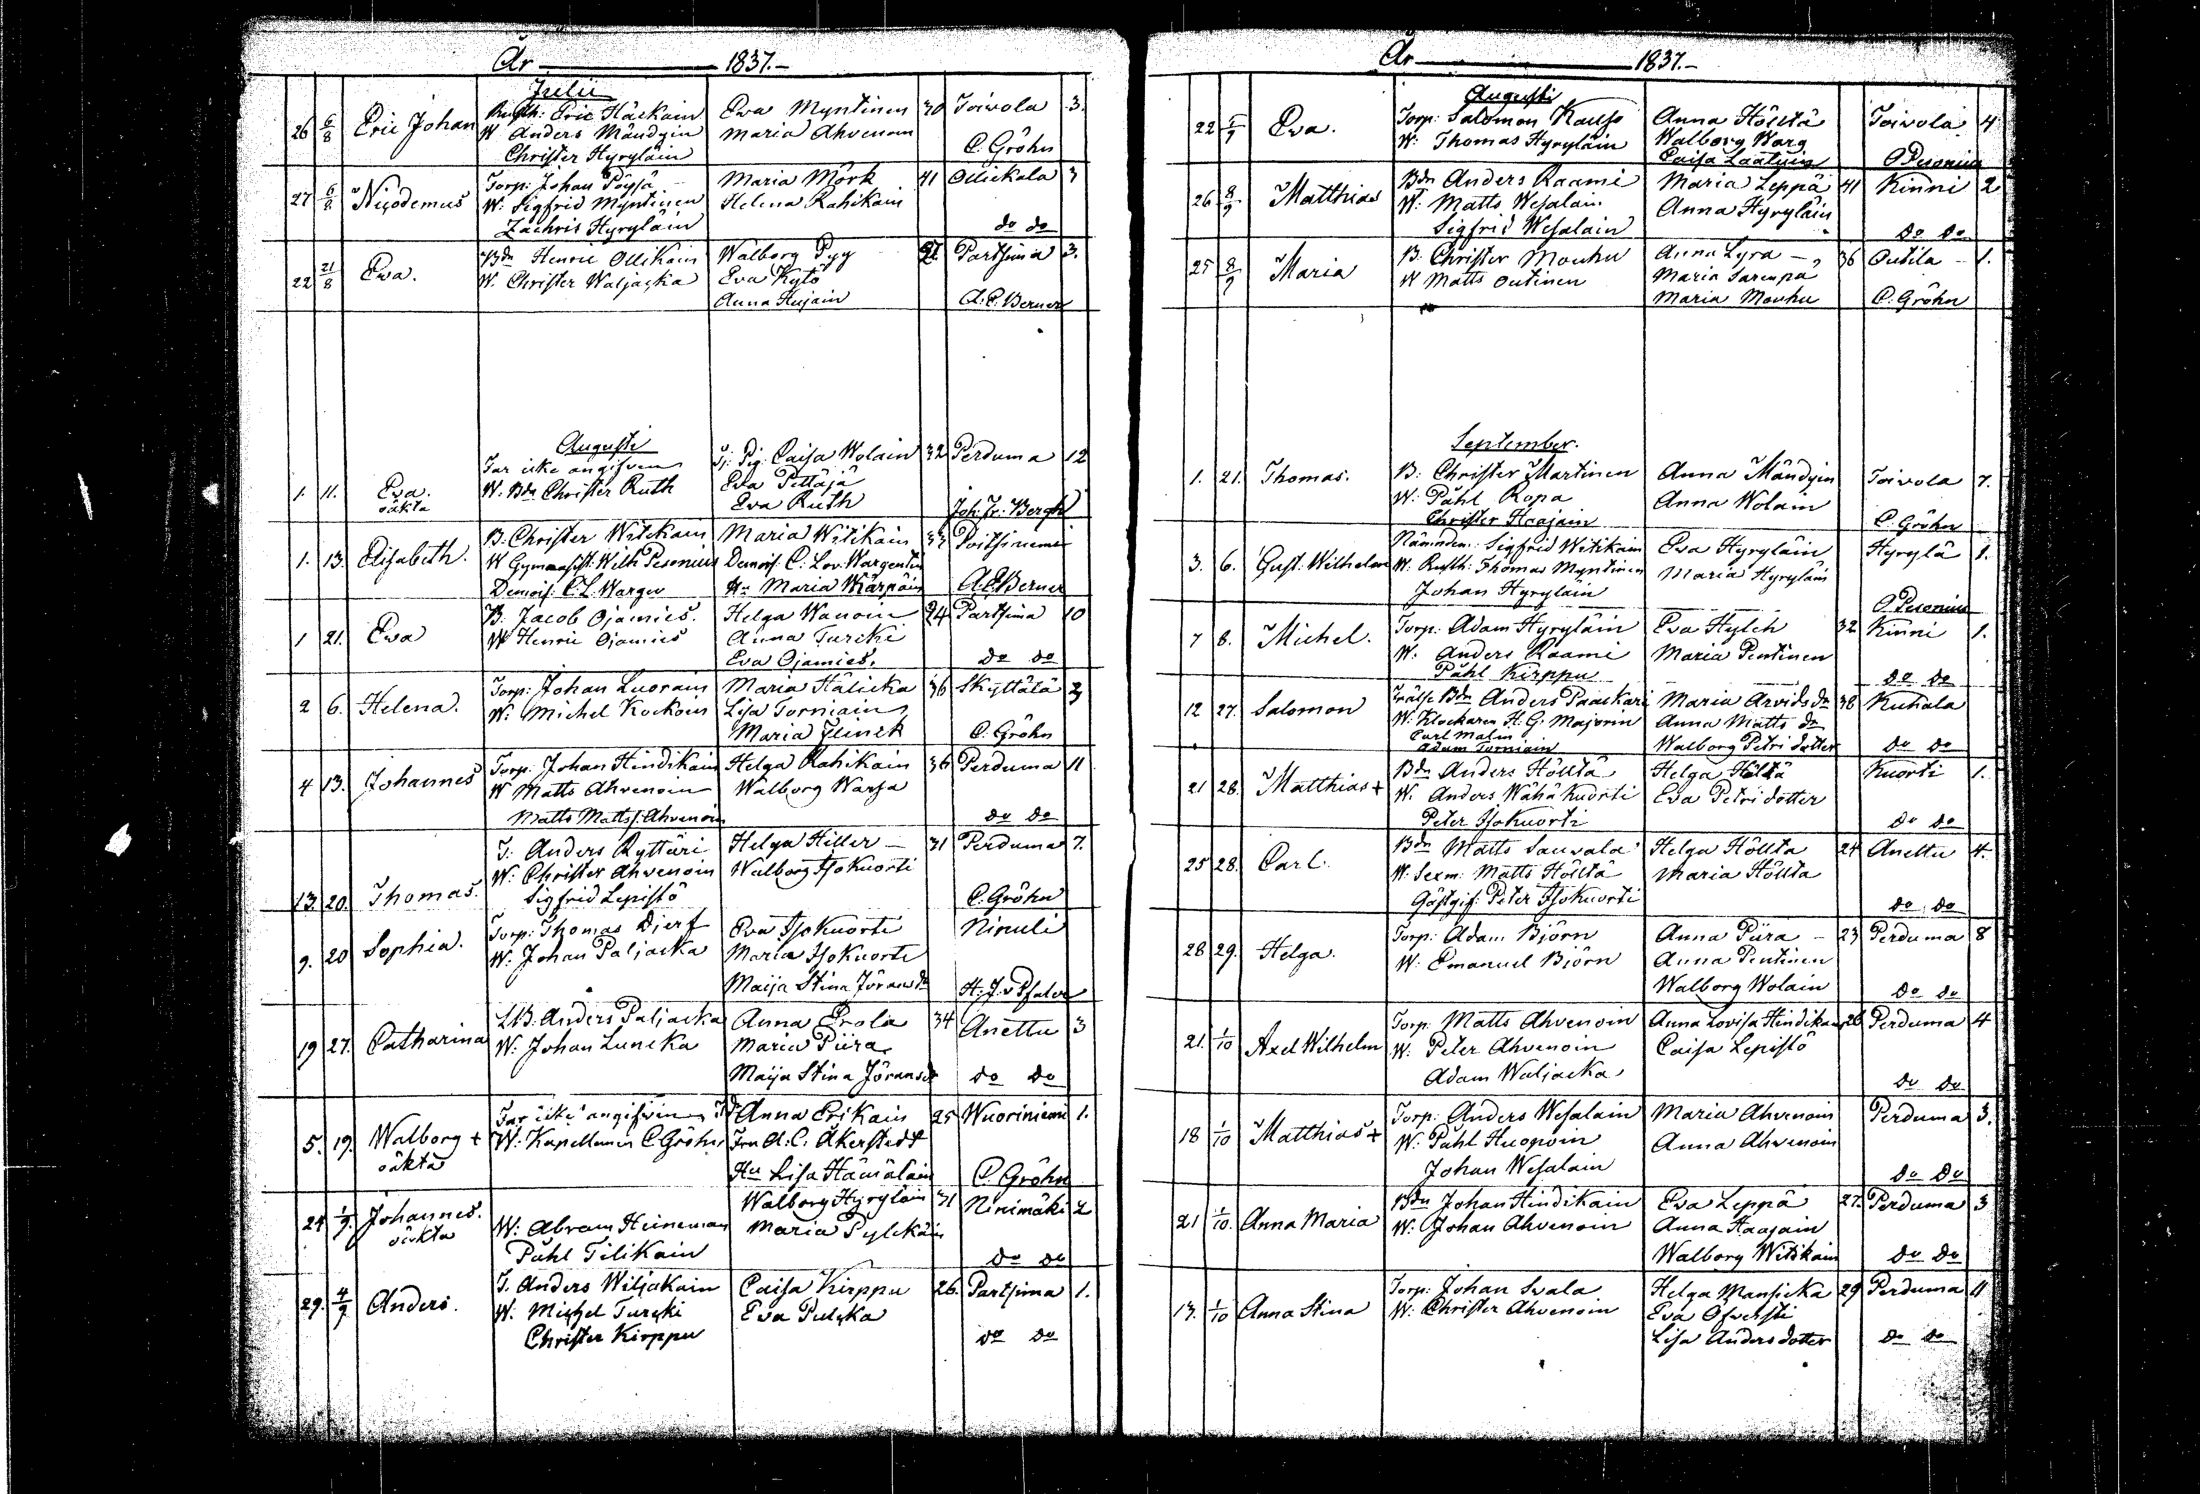 År 1837.
Julii
26 6/8 Eric Johan Rusth: Eric Häckain Eva Myntinen 30 Toivola 3.
W Anders Mändyin Maria Ahvenoin
Christer Hyryläin C. Gröhn
27 6/8 Nicodemus Torp: Johan Pöysä Maria Mörk 41 Ollickala 3
W: Sigfrid Myntinen Helena Rahikain
Zachris Hyryläin do do
22 21/8 Eva. Bdn Henric Ollikain Walborg Pyy Partsima 3.
W. Christer Waljacka Eva Kytö
Anna Hujain A. E. Berner
Augusti
1. 11. Eva. oäkta Far icke angifven Pig: Caisa Wolain 32 Perduma 12
W. Bdn Christer Ruth Eva Pettäjä
Eva Ruth Joh: Fr: Bergh
1. 13. Elisabeth. B. Christer Witikain Maria Witikain 33 Poitsiniemi
W Gymnasist: Wilh Pesonius Demois: C. Lov. Wargentin
Demois: C. L. Wargen Hu Maria Kärpäin A E Berner
1 21. Eva B. Jacob Ojamies. Helga Wanoin 24 Partsima 10
W Henric Ojamies Anna Turcki
Eva Ojamies. do do
2 6. Helena. Torp: Johan Luorain Maria Hälicka 36 Skyttälä 3
W: Michel Kockoin Lisa Torniain
Maria Flinck C. Gröhn
4 13. Johannes Torp: Johan Hindikain Helga Rahikain 36 Perduma 11
W Matts Ahvenoin Walborg Warsa
Matts Matts: Ahvenoin do do
13. 20. Thomas. T: Anders Ryttäri Helga Hiller 31 Perduma 7.
W: Christer Ahvenoin Walborg Isokuorti
Sigfrid Lepistö C. Gröhn
9. 20 Sophia. Torp: Thomas Djerf Eva Isokuorti Niruli
W. Johan Paljacka Maria Isokuorti
Maija Stina Jöransd
19 27. Catharina LB. Anders Paljacka Anna Erola 34 Anettu 3
W: Johan Luncka Maria Piira
Maija Stina Jöransd do do
5. 19. Walborg + oäkta Far icke angifven Anna Erikain 25 Wuoriniemi 1.
W: Kapellanen C Gröhn Fru A. C. Åkerstedt
Hu Lisa Hämäläin C. Gröhn
24 1/9. Johannes. oäkta Walborg Hyryläin 31 Ninimäki 2
W: Abram Heineman Maria Pylckäin
Påhl Tilikain do do
29. 4/9 Anders. T. Anders Wiljakain Caisa Kirppu 26. Partsima 1.
W. Michel Turcki Eva Pulcka
Christer Kirppu do do
År 1837.
Augusti
22 5/9 Eva. Torp: Salomon Kauso Anna Hölttä Toivola 4
W: Thomas Hyryläin Walborg Warg
Caisa Laatuin O Pesonius
26 8/9 Matthias Bdn Anders Raami Maria Leppä 41 Kinni 2
W: Matts Wesalain Anna Hyryläin
Sigfrid Wesalain do do
25 8/9 Maria B. Christer Mouhu Anna Lyra 36 Outila 1.
W Matts Outinen Maria Sarenpä
Maria Mouhu C. Gröhn
September.
1. 21. Thomas. B: Christer Martinen Anna Mändyin Toivola 7.
W: Påhl Ropa Anna Wolain
Christer Haajain C. Gröhn
3. 6. Gust. Wilhelm Nämndem: Sigfrid Witikain Eva Hyryläin Hyrylä 1.
W. Rusth: Thomas Myntinen Maria Hyryläin
Johan Hyryläin O Pesonius
7 8. Michel. Torp: Adam Hyryläin Eva Hylch 32 Kinni 1.
W. Anders Raami Maria Pentinen
Påhl Kirppu do do
12 27. Salomon Frälse Bdn Anders Paaskari Maria Arvids dr 38 Kuhala
W. Klockaren H. G. Majorin Anna Matts dr
Carl Malin
Adam Torniain Walborg Petri dotter do do
21 28. Matthias + Bdn Anders Hölttä Helga Hölttä Kuorti 1.
W. Anders Wähä Kuorti Eva Petri dotter
Peter Isokuorti do do
25 28. Carl. Bdn Matts Sauvala Helga Höltta 24 Anettu 4.
W. Sexm: Matts Hölttä Maria Höltta
Gästgif: Peter Isokuorti do do
28 29. Helga. Torp: Adam Björn Anna Piira 23 Perduma 8
W: Emanuel Björn Anna Pentinen
Walborg Wolain do do
21. 1/10 Axel Wilhelm Torp: Matts Ahvenoin Anna Lovisa Hindikain 26 Perduma 4
W. Peter Ahvenoin Caisa Lepistö
Adam Waljacka do do
18 1/10 Matthias + Torp: Anders Wesalain Maria Ahvenoin Perduma 3.
W: Påhl Huopoin Anna Ahvenoin
Johan Wesalain do do
21 1/10. Anna Maria Bdn Johan Hindikain Eva Leppä 27. Perduma 3
W: Johan Ahvenoin Anna Haajain
Walborg Witikain do do
13. 1/10 Anna Stina Torp: Johan Svala Helga Mansicka 29 Perduma 11
W: Christer Ahvenoin Eva Ofversti
Lisa Andersdotter do do